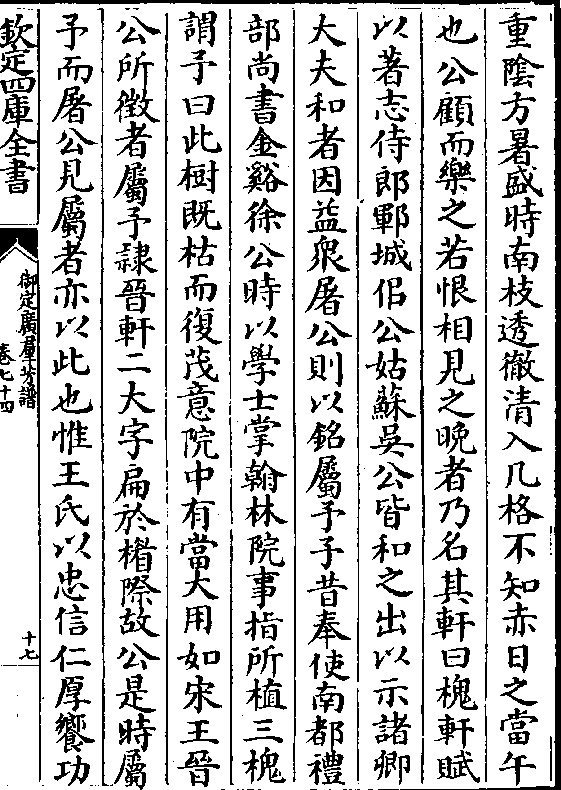 重隂方暑盛時南枝透徹清入几格不知赤日之當午
也公顧而樂之若恨相見之晚者乃名其軒曰槐軒賦
以著志侍郎鄆城佀公姑蘇吳公皆和之出以示諸卿
大夫和者因益衆屠公則以銘屬予予昔奉使南都禮
部尚書金谿徐公時以學士掌翰林院事指所植三槐
謂予曰此樹既枯而復茂意院中有當大用如宋王晉
公所徵者屬予隷晉軒二大字扁於楣際故公是時屬
予而屠公見屬者亦以此也惟王氏以忠信仁厚饗功
欽定四庫全書
御定廣羣芳譜
卷七十四
十七